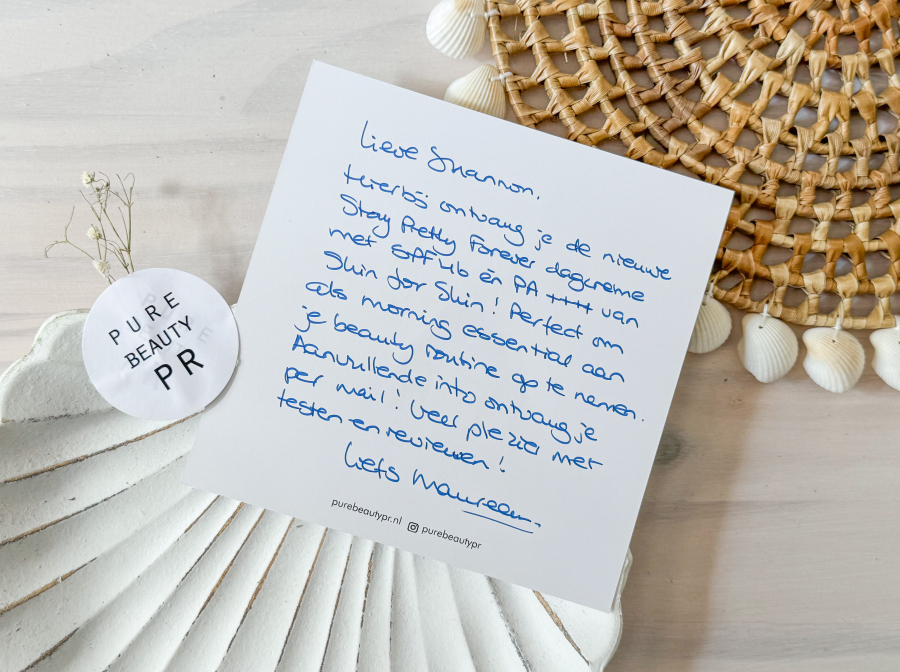 Lieve Shannon,
Hierbij ontvang je de nieuwe
Stay Pretty Forever dagcreme
met SPF46 én PA ++++ van
Skin for Skin! Perfect om
als morning essential aan
je beauty routine op te nemen.
Aanvullende info ontvang je
per mail! Veel plezier met
testen en reviewen!
Liefs Maureen.
purebeautypr.nl purebeautypr
PURE
BEAUTY
PR